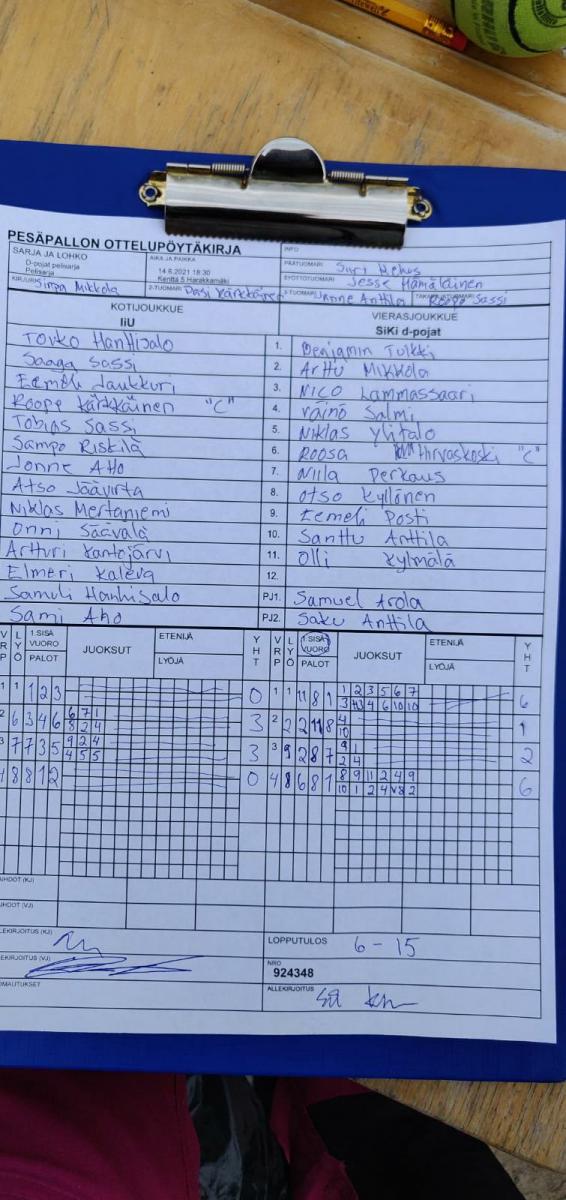 PESÄPALLON OTTELUPÖYTÄKIRJA
INFO
SARJA JA LOHKO
D-pojat pelisarja
Pelisarja
AIKA JA PAIKKA
14.6.2021 18:30
Kenttä 5 Harakkamäki
PÄÄTUOMARI
SYÖTTÖTUOMARI Jesse Hämäläinen
Mikkola
2-TUOMARI Pasi Kärkkäinen
3-TUOMARI Anttila
Roope Sassi
KOTIJOUKKUE
IiU
VIERASJOUKKUE
SiKi d-pojat
Hanhisalo 1. Benjamin Tulkki
Saaga Sassi 2. Arttu Mikkola
Eemeli Laukkuri 3. Nico Lammassaari
Roope Kärkkäinen "C" 4. Väinö Salmi
Tobias Sassi 5. Niklas Ylitalo
Sampo Riskilä 6. Roosa Hirvaskoski "C"
Jonne Aho 7. Niila Perkaus
Atso Jäävirta 8. Otso Kyllönen
Niklas Mertaniemi 9. Eemeli Posti
Onni Säävälä 10. Santtu Anttila
Artturi Kantojärvi 11. Olli Kylmälä
Elmeri Kaleva 12.
Samuli Hanhisalo PJ1. Samuel Arola
Sami Aho PJ2. Saku Anttila
VRP LYÖ 1.SISÄ VUORO PALOT JUOKSUT ETENIJÄ LYÖJÄ YHT VRP LYÖ 1.SISÄ VUORO PALOT JUOKSUT ETENIJÄ LYÖJÄ YHT
1 1 1 2 3 0 1 1 11 8 1 1 2 3 5 6 7 6
2 6 3 4 6 6 7 1 3 2 2 2 11 8 4 1
8 2 4 10
3 7 7 3 5 9 2 4 3 3 9 2 8 7 9 1 2
4 5 5 2 4
4 8 8 1 2 0 4 8 6 8 1 8 9 11 2 4 9 6
LOPPUTULOS 6 - 15
NRO
924348
ALLEKIRJOITUS